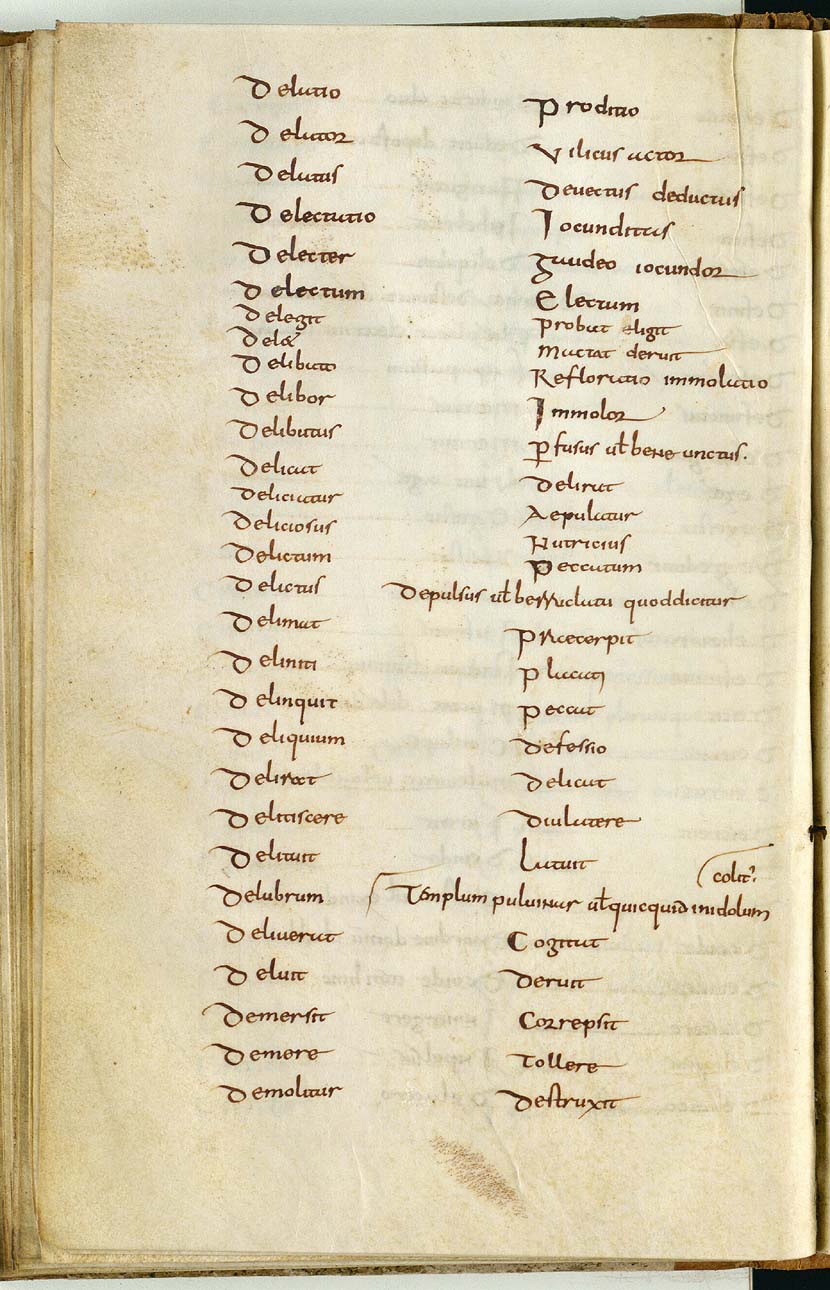 Delatio Proditio
Delator Vilicus actor
Delatus Deuectus deductus
Delectatio Iocunditas
Delecter gaudeo iocundor
Delectum Electum
Delegit Probat eligit
Del& Mactat
Delibatio Refloratio immolatio
Delibor Immolor
Delibutus ꝑfusus uƚ bene unctus.
Delicat Delirat
Deliciatur Aepulatur
Deliciosus Nutricius
Delictum Peccatum
Delictus Depulsus uƚ quoddicitur
Delimat Praecerpit
Deliniti Placati
Delinquit Peccat
Deliquium Defessio
Delirat Delicat
Delitiscere Diulatere
Delituit Latuit
colit᾿.
Delubrum Templum puluinar uƚ quicquid inidolum
Deliverat Cogitat
Deluit Deruit
Demersit Correpsit
Demere Tollere
Demolitur Destruxit